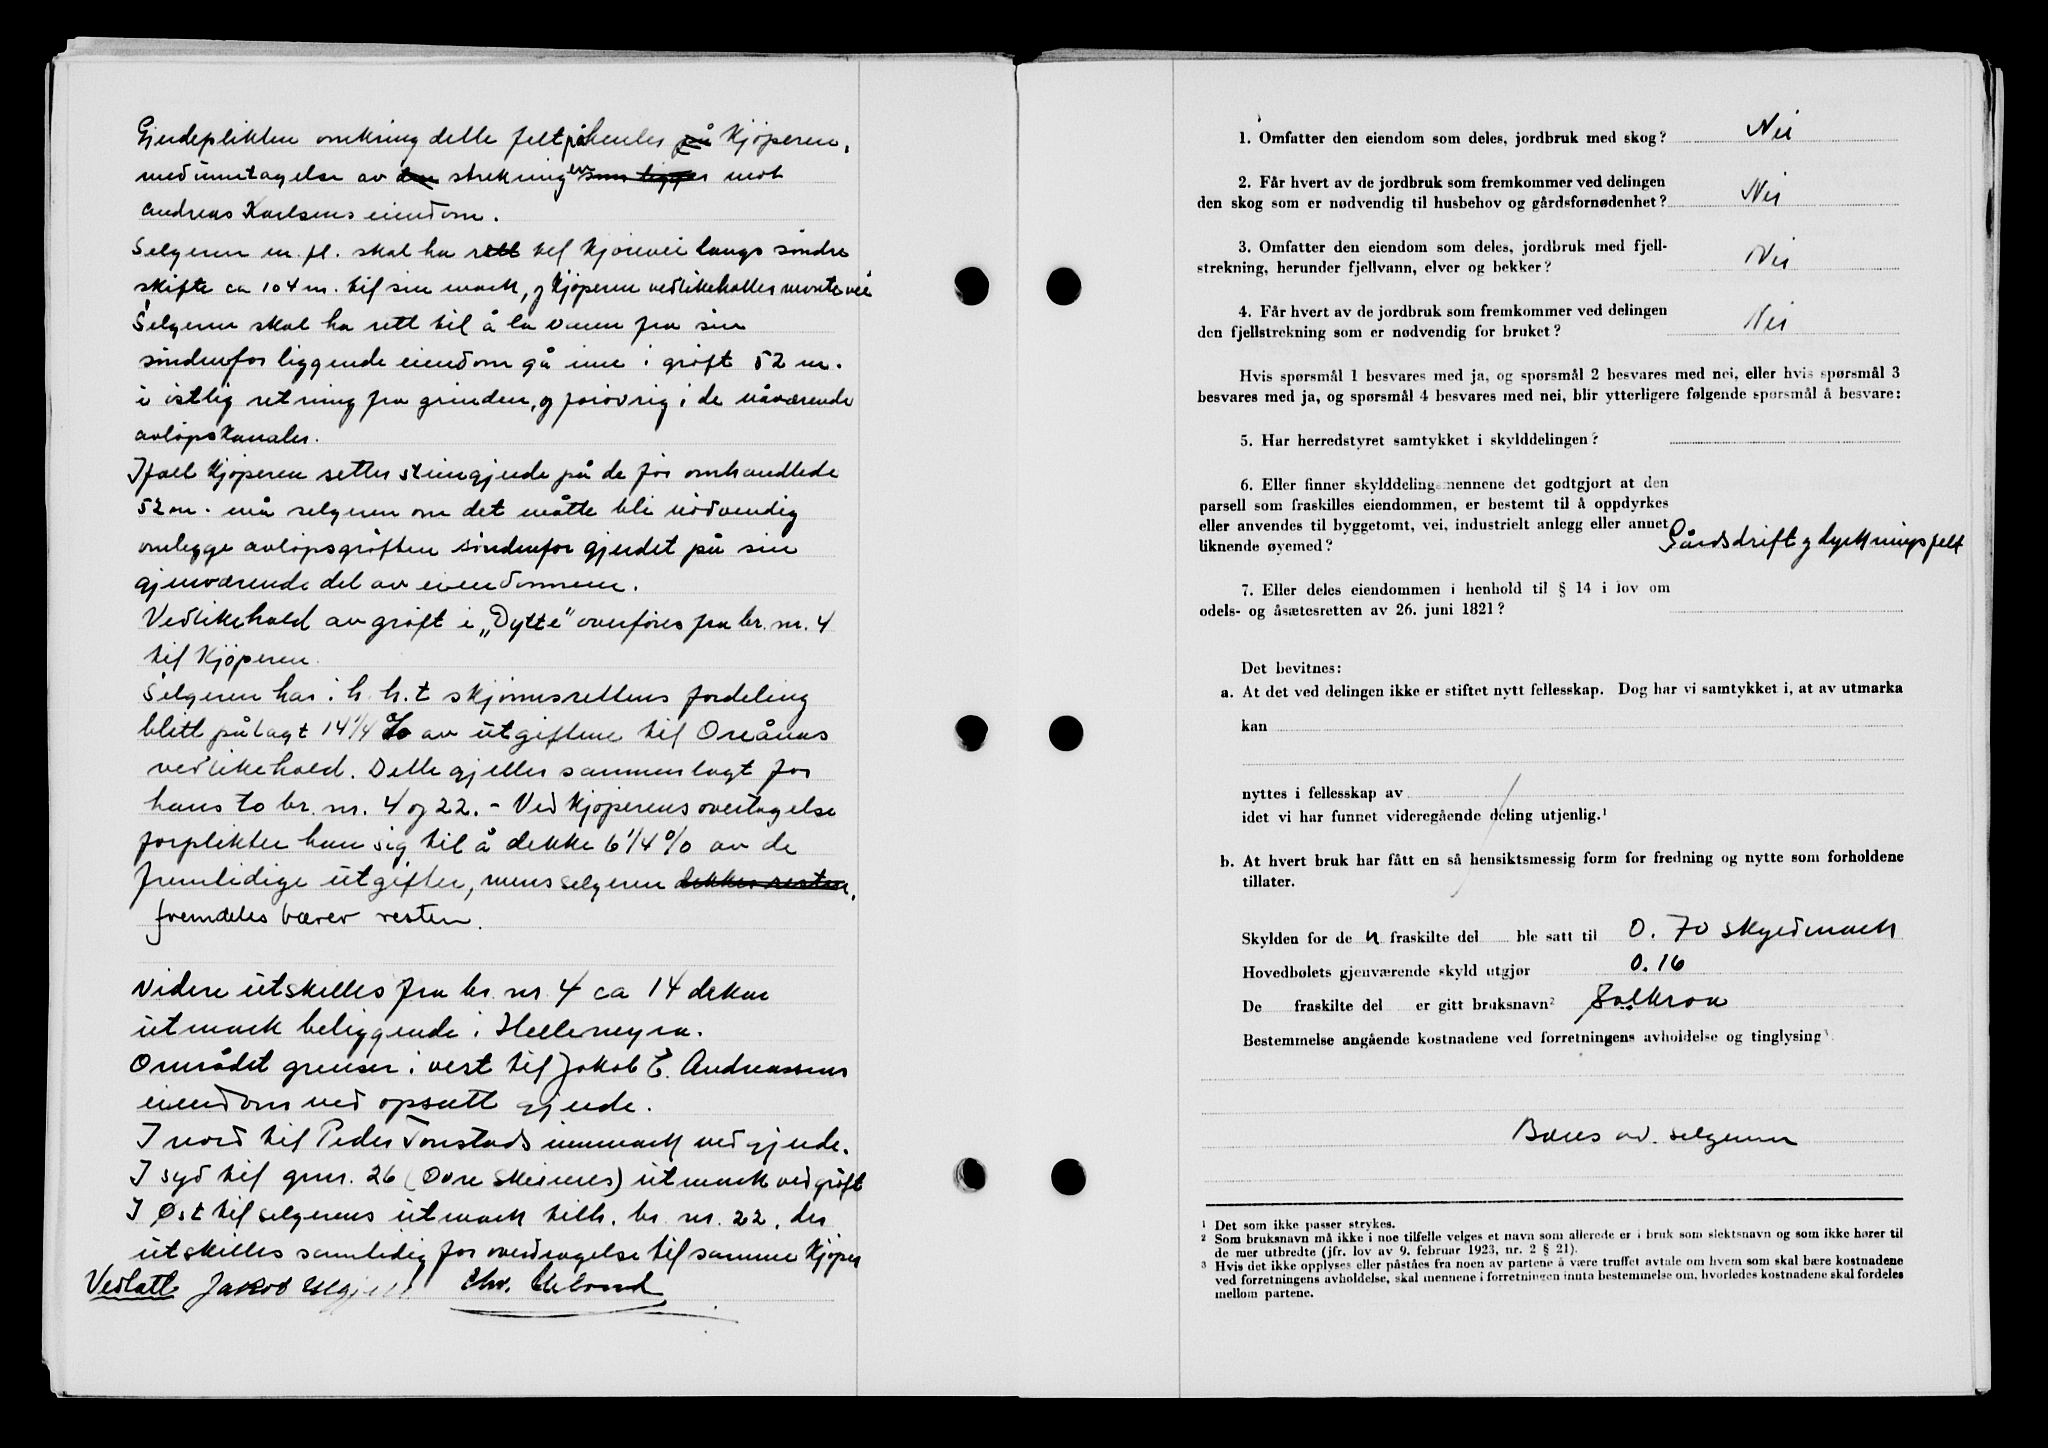 Gjerdeplikten omkring dette felt påhviler på Kjøperen,
med unntagelse av den strekning en som ligger mot
Andreas Karlsens eiendom.
Selgeren m. fl. skal ha rett til kjørevei langs søndre
skifte ca 104 m. til sin mark, og Kjøperen vedlikeholder vei
Selgeren skal ha rett til å la vann fra sin
sindenfor liggende eiendom gå inn i grøft 52 m.
i østlig retning fra grinden, og forøvrig i de nåværende
avløpskanaler.
Ifall Kjøperen setter steingjerde på de før omhandlede
52 m. må selgeren om det måtte bli nødvendig
omlegge avløpsgrøften søndenfor gjerdet på sin
gjenværende del av eiendommen.
Vedlikehold av grøft i „Dytte" overføres fra br. nr. 4
til Kjøperen.
Selgeren har i h. h. t skjønnsrettens fordeling
blitt pålagt 14 1/4 % av utgiftene til Oreånas
vedlikehold. Dette gjelder sammenlagt for
hans to br. nr. 4 og 22. - Ved Kjøperens overtagelse
forplikter han sig til å dekke 6 1/4 % av de
fremtidige utgifter, mens selgeren dekker resten.
fremdeles bærer resten.
Videre utskilles fra br. nr. 4 ca 14 dekar
utmark beliggende i Hellemyra.
Området grenser i vest til Jakob E. Andreassens
eiendom ved opsatt gjerde.
I nord til Peder Tonstads innmark ved gjerde.
I syd til gnr. 26 (Øvre Skeires) utmark ved grøft
I Øst til selgerens utmark tilh. br. nr. 22, der
utskilles samtidig for overdragelse til samme Kjøper
Vedtatt Jakob Chr.
1. Omfatter den eiendom som deles, jordbruk med skog? Nei
2. Får hvert av de jordbruk som fremkommer ved delingen
den skog som er nødvendig til husbehov og gårdsfornødenhet? Nei
3. Omfatter den eiendom som deles, jordbruk med fjell-
strekning, herunder fjellvann, elver og bekker? Nei
4. Får hvert av de jordbruk som fremkommer ved delingen
den fjellstrekning som er nødvendig for bruket? Nei
Hvis spørsmål 1 besvares med ja, og spørsmål 2 besvares med nei, eller hvis spørsmål 3
besvares med ja, og spørsmål 4 besvares med nei, blir ytterligere følgende spørsmål å besvare:
5. Har herredstyret samtykket i skylddelingen?
6. Eller finner skylddelingsmennene det godtgjort at den
parsell som fraskilles eiendommen, er bestemt til å oppdyrkes
eller anvendes til byggetomt, vei, industrielt anlegg eller annet
liknende øyemed? Gårdsdrift og dyrkningsfelt
7. Eller deles eiendommen i henhold til § 14 i lov om
odels- og åsætesretten av 26. juni 1821?
Det bevitnes:
a. At det ved delingen ikke er stiftet nytt fellesskap. Dog har vi samtykket i, at av utmarka
kan
nyttes i fellesskap av
idet vi har funnet videregående deling utjenlig.¹
b. At hvert bruk har fått en så hensiktsmessig form for fredning og nytte som forholdene
tillater.
Skylden for de n fraskilte del ble satt til 0.70 skyldmark
Hovedbølets gjenværende skyld utgjør 0.16
De fraskilte del er gitt bruksnavn² Solkroa
Bestemmelse angående kostnadene ved forretningens avholdelse og tinglysing³
Bæres av selgeren
¹ Det som ikke passer strykes.
² Som bruksnavn må ikke i noe tilfelle velges et navn som allerede er i bruk som slektsnavn og som ikke hører til
de mer utbredte (jfr. lov av 9. februar 1923, nr. 2 § 21).
³ Hvis det ikke opplyses eller påståes fra noen av partene å være truffet avtale om hvem som skal bære kostnadene
ved forretningens avholdelse, skal mennene i forretningen innta bestemmelse om, hvorledes kostnadene skal fordeles
mellom partene.